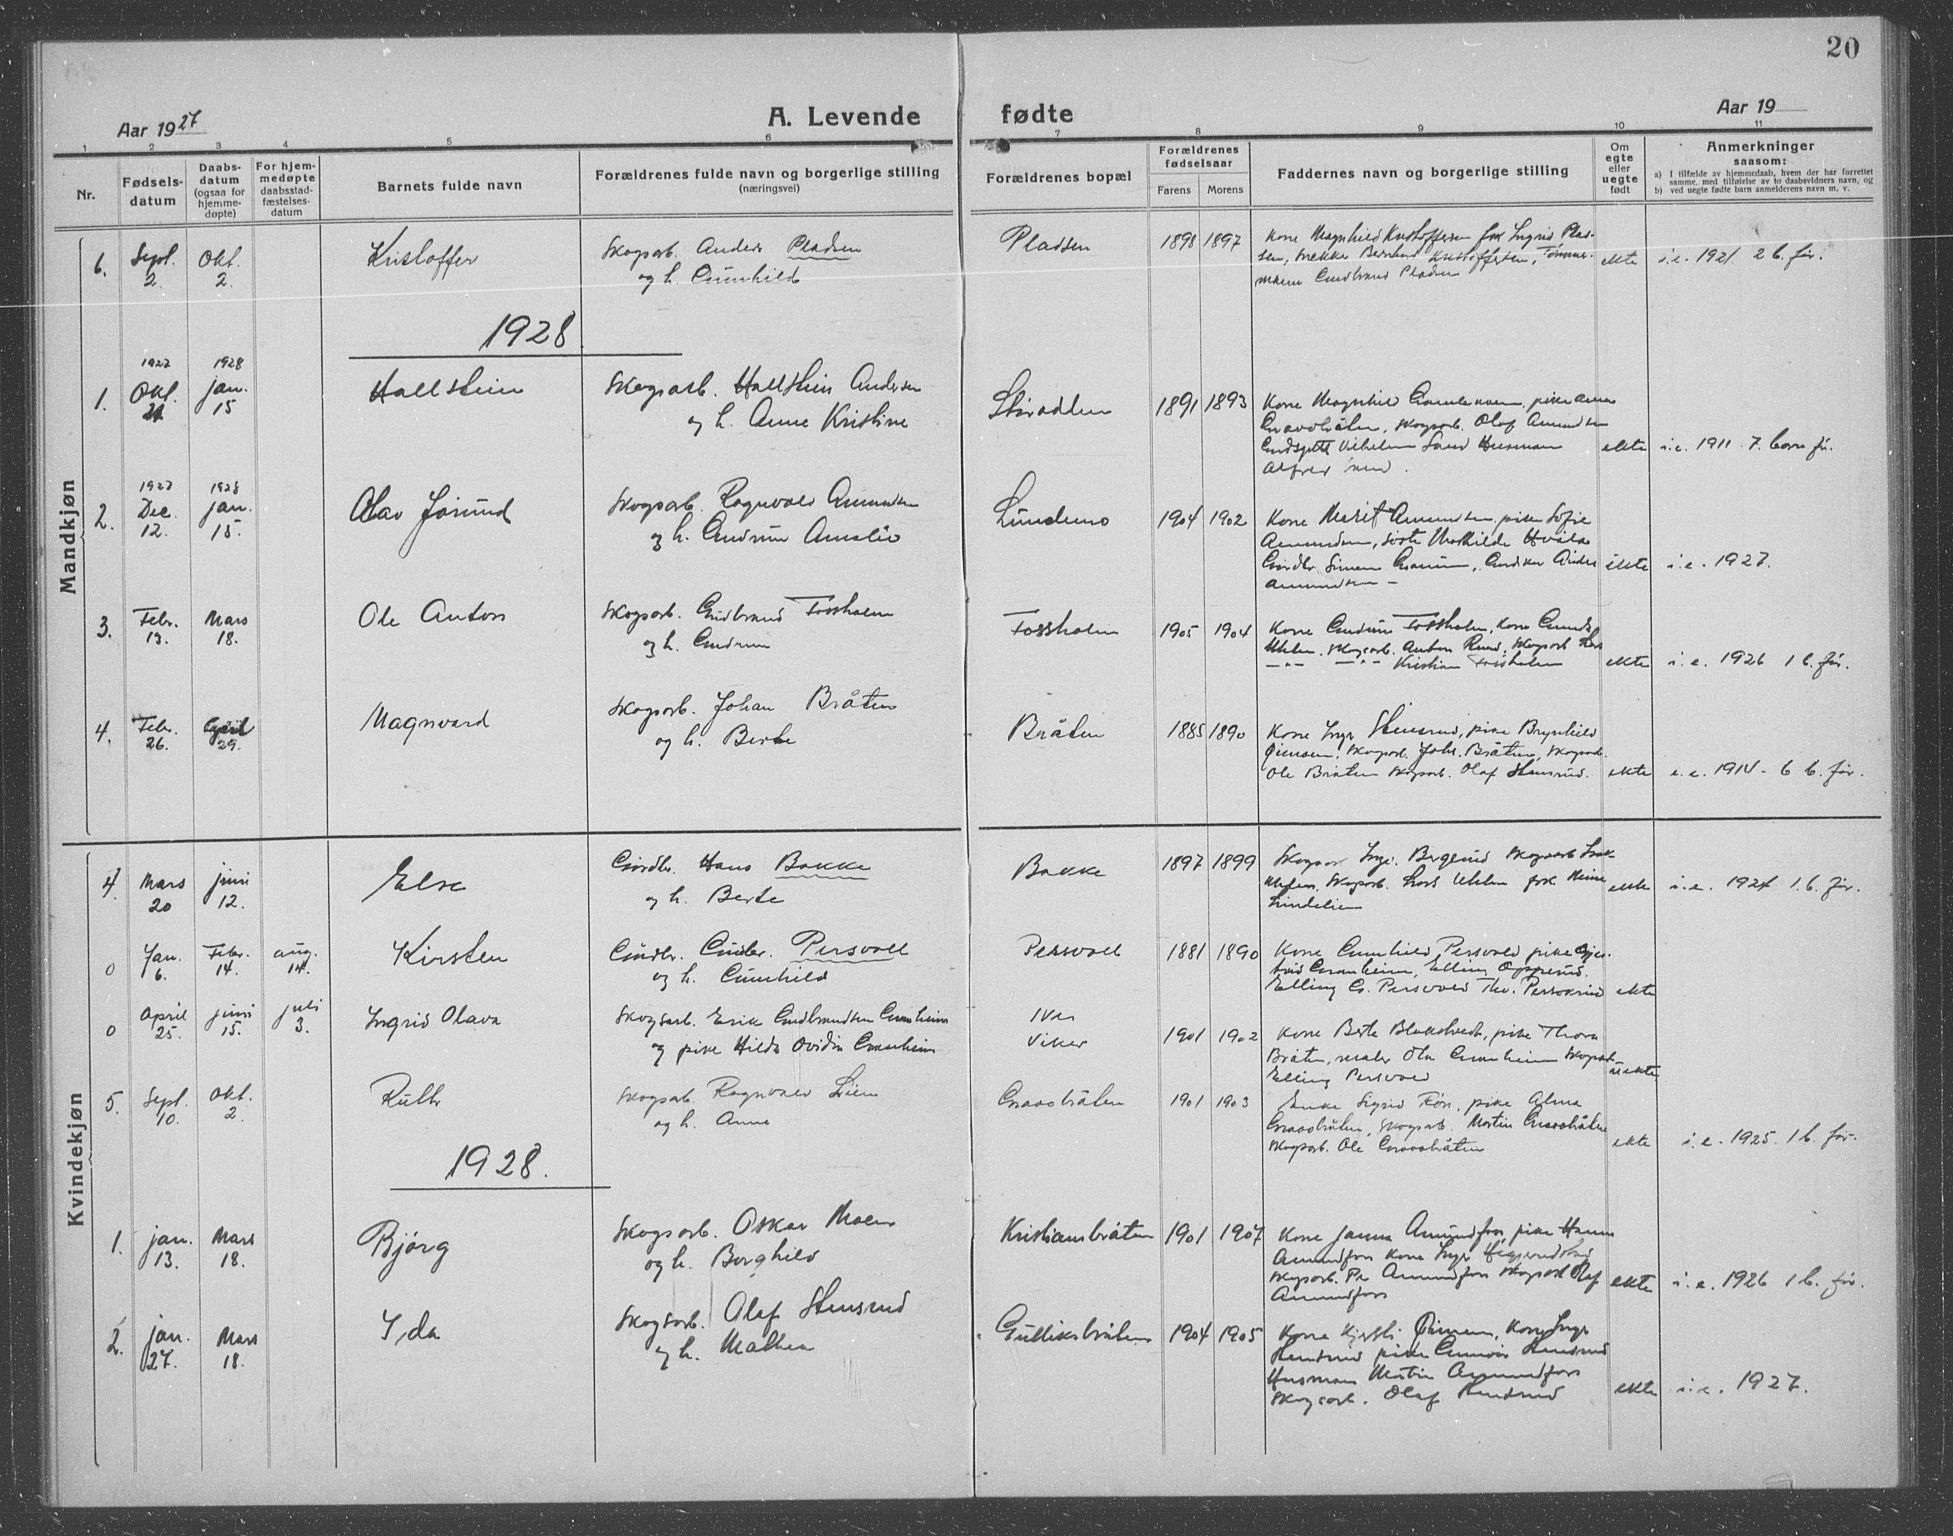 20
Aar 1927
A. Levende fødte
Aar 19
1 2 3 4 5 6 7 8 9 10 11
Nr.
Fødsels-
datum
Daabs-
datum
(ogsaa for
hjemme-
døpte)
For hjem-
medøpte
daabsstad-
fæstelses-
datum
Barnets fulde navn
Forældrenes fulde navn og borgerlige stilling
(næringsvei)
Forældrenes bopæl
Forældrenes
fødselsaar
Farens Morens
Faddernes navn og borgerlige stilling
Om
egte
eller
uegte
født
Anmerkninger
saasom:
a) I tilfælde av hjemmedaab, hvem der har forrettet
samme, med tilføielse av to daabsvidners navn, og
b) ved uegte fødte barn anmelderens navn m. v.
Mandkjøn
6. Sept. 2. Okt. 2. Kristoffer
Skogsarb. Anders Pladsen
og h. Gunhild
Pladsen 1898 1897
Kone Magnhild Kristoffersen frk Ingrid Plas-
sen, Kristoffersen, Tømmer-
mann Gudbrand Pladsen
ekte i.e. 1921. 2 b. før.
1928
1. 1927 Okt. 1928 jan. 15 Hallstein
Skogsarb. Hallstein Andersen
og h. Anne Kristine
1891 1893
Kone Magnhild pike Anna
Gravbråten, skogsarb. Olaf Amundsen
Vilhelm Husmann
Alfred
ekte i.e. 1911. 7. barn før.
2. 1927 Dec. 12. 1928 jan. 15. Olav Jørund
Skogsarb. Ragnvald Amundsen
og h. Gudrun Amalie
Lundmo 1904 1902
Kone Marit Amundsen, pike Sofie
Amundsen, Mathilde
Gårdbr. Simen Anders
Amundsen –
ekte i.e. 1927.
3. Febr. 13. Mars 18. Ole Anton
Skogsarb. Gudbrand Fossholm
og h. Gudrun
Fossholm 1905 1904
Kone Gudrun Fossholm, Kone
skogsarb. Anton Ruud, Skogsarb
—"— —"— Kristian Fossholm
ekte i.e. 1926 1 b. før.
4. Febr. 26. April 29. Magnvard
Skogsarb. Johan Bråten
og h. Berte
Bråten 1885 1890
Kone Inga Stensrud, pike Brynhild
skogsarb. Johs. Bråten, skogsarb.
Ole Bråten skogsarb. Olaf Stensrud.
ekte i.e. 1914 - 6 b. før.
Kvindekjøn
4. Mars 20 juni 12. Else
Gårdbr. Hans Bakke
og h. Berte
Bakke 1897 1899
Skogsarb Berglund Skogsarb
Skogsarb. Lars frk
Lindelien
ekte i.e. 1924 1 b. før.
0 Jan. 6. Febr. 14. aug. 14. Kirsten
Gårdbr. Gudbr. Persvoll
og h. Gunhild
Persvoll 1881 1890
Kone Gunhild Persvold pike
Granheim, Elling Opperud.
Elling G. Persvold
ekte
0 April 25. juni 15. juli 3. Ingrid Olava
Skogsarb. Erik Gudbrandsen Granheim
og pike Hilda Ovidia Granheim
Viker 1901 1902
Kone Berte pike Thora
Bråten, maler Ola Granheim skogsarb.
Elling Persvold
uekte
5. Sept. 10. Okt. 2 Ruth
Skogsarb. Ragnvald Lien
og h. Anna
Gravbråten 1901 1903
Enke Sigrid pike Alma
Gravbråten, Skogsarb. Martin Gravbråten
skogsarb. Ole Gravbråten
ekte i.e. 1925. 1 b. før.
1928.
1. jan. 13. Mars 18. Bjørg
Skogsarb. Oskar Moen
og h. Borghild
Kristiansbråten 1901 1907
Kone Janna Amundfoss, pike Hanna
Amundfoss Kone Inga
skogsarb. Per Amundfoss skogsarb Olaf
Amundfoss
ekte i.e. 1926 1 b. før.
2. jan. 27. Mars 18. Ida
Skogsarb. Olaf Stensrud
og h. Mathea
Gulliksbråten 1904 1905
Kone Kjersti Kone Inga
pike
Husmann Martin Amundfoss
Skogsarb. Olaf
ekte i.e. 1927.